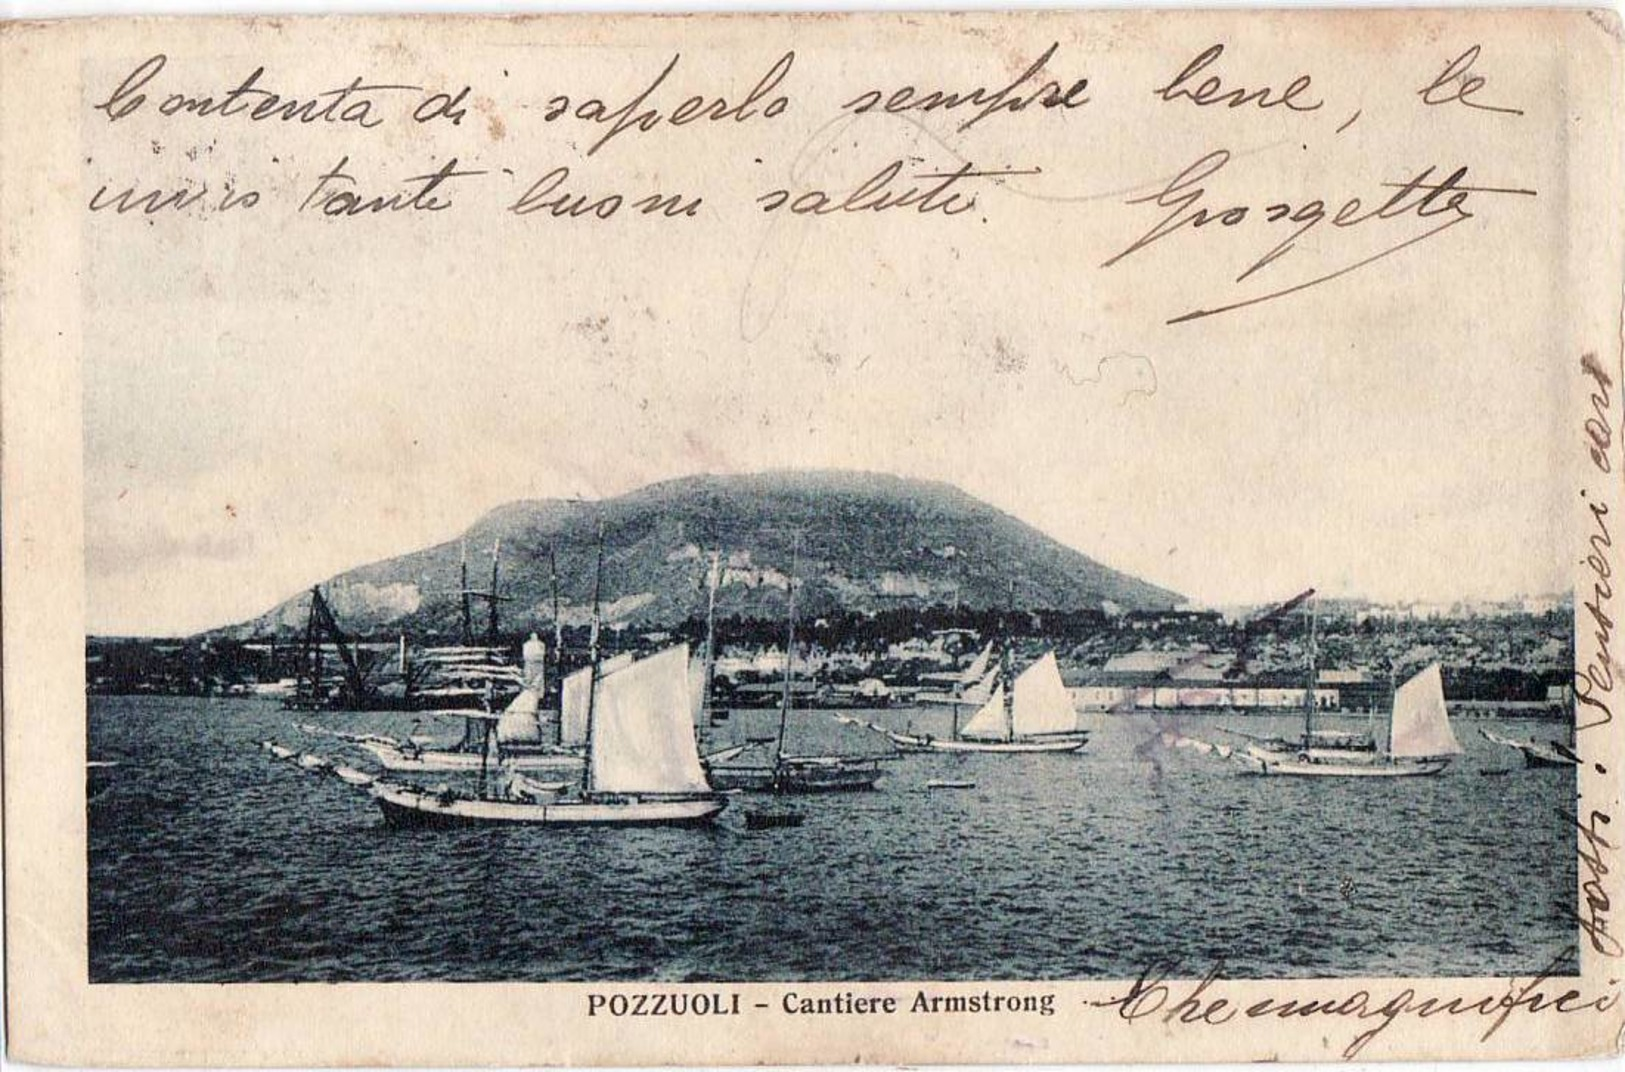 Contenta di saperlo sempre bene, le
invio tante buoni saluti. Giorgetta
POZZUOLI - Cantiere Armstrong
Che magnifici
posti! Pensieri cari